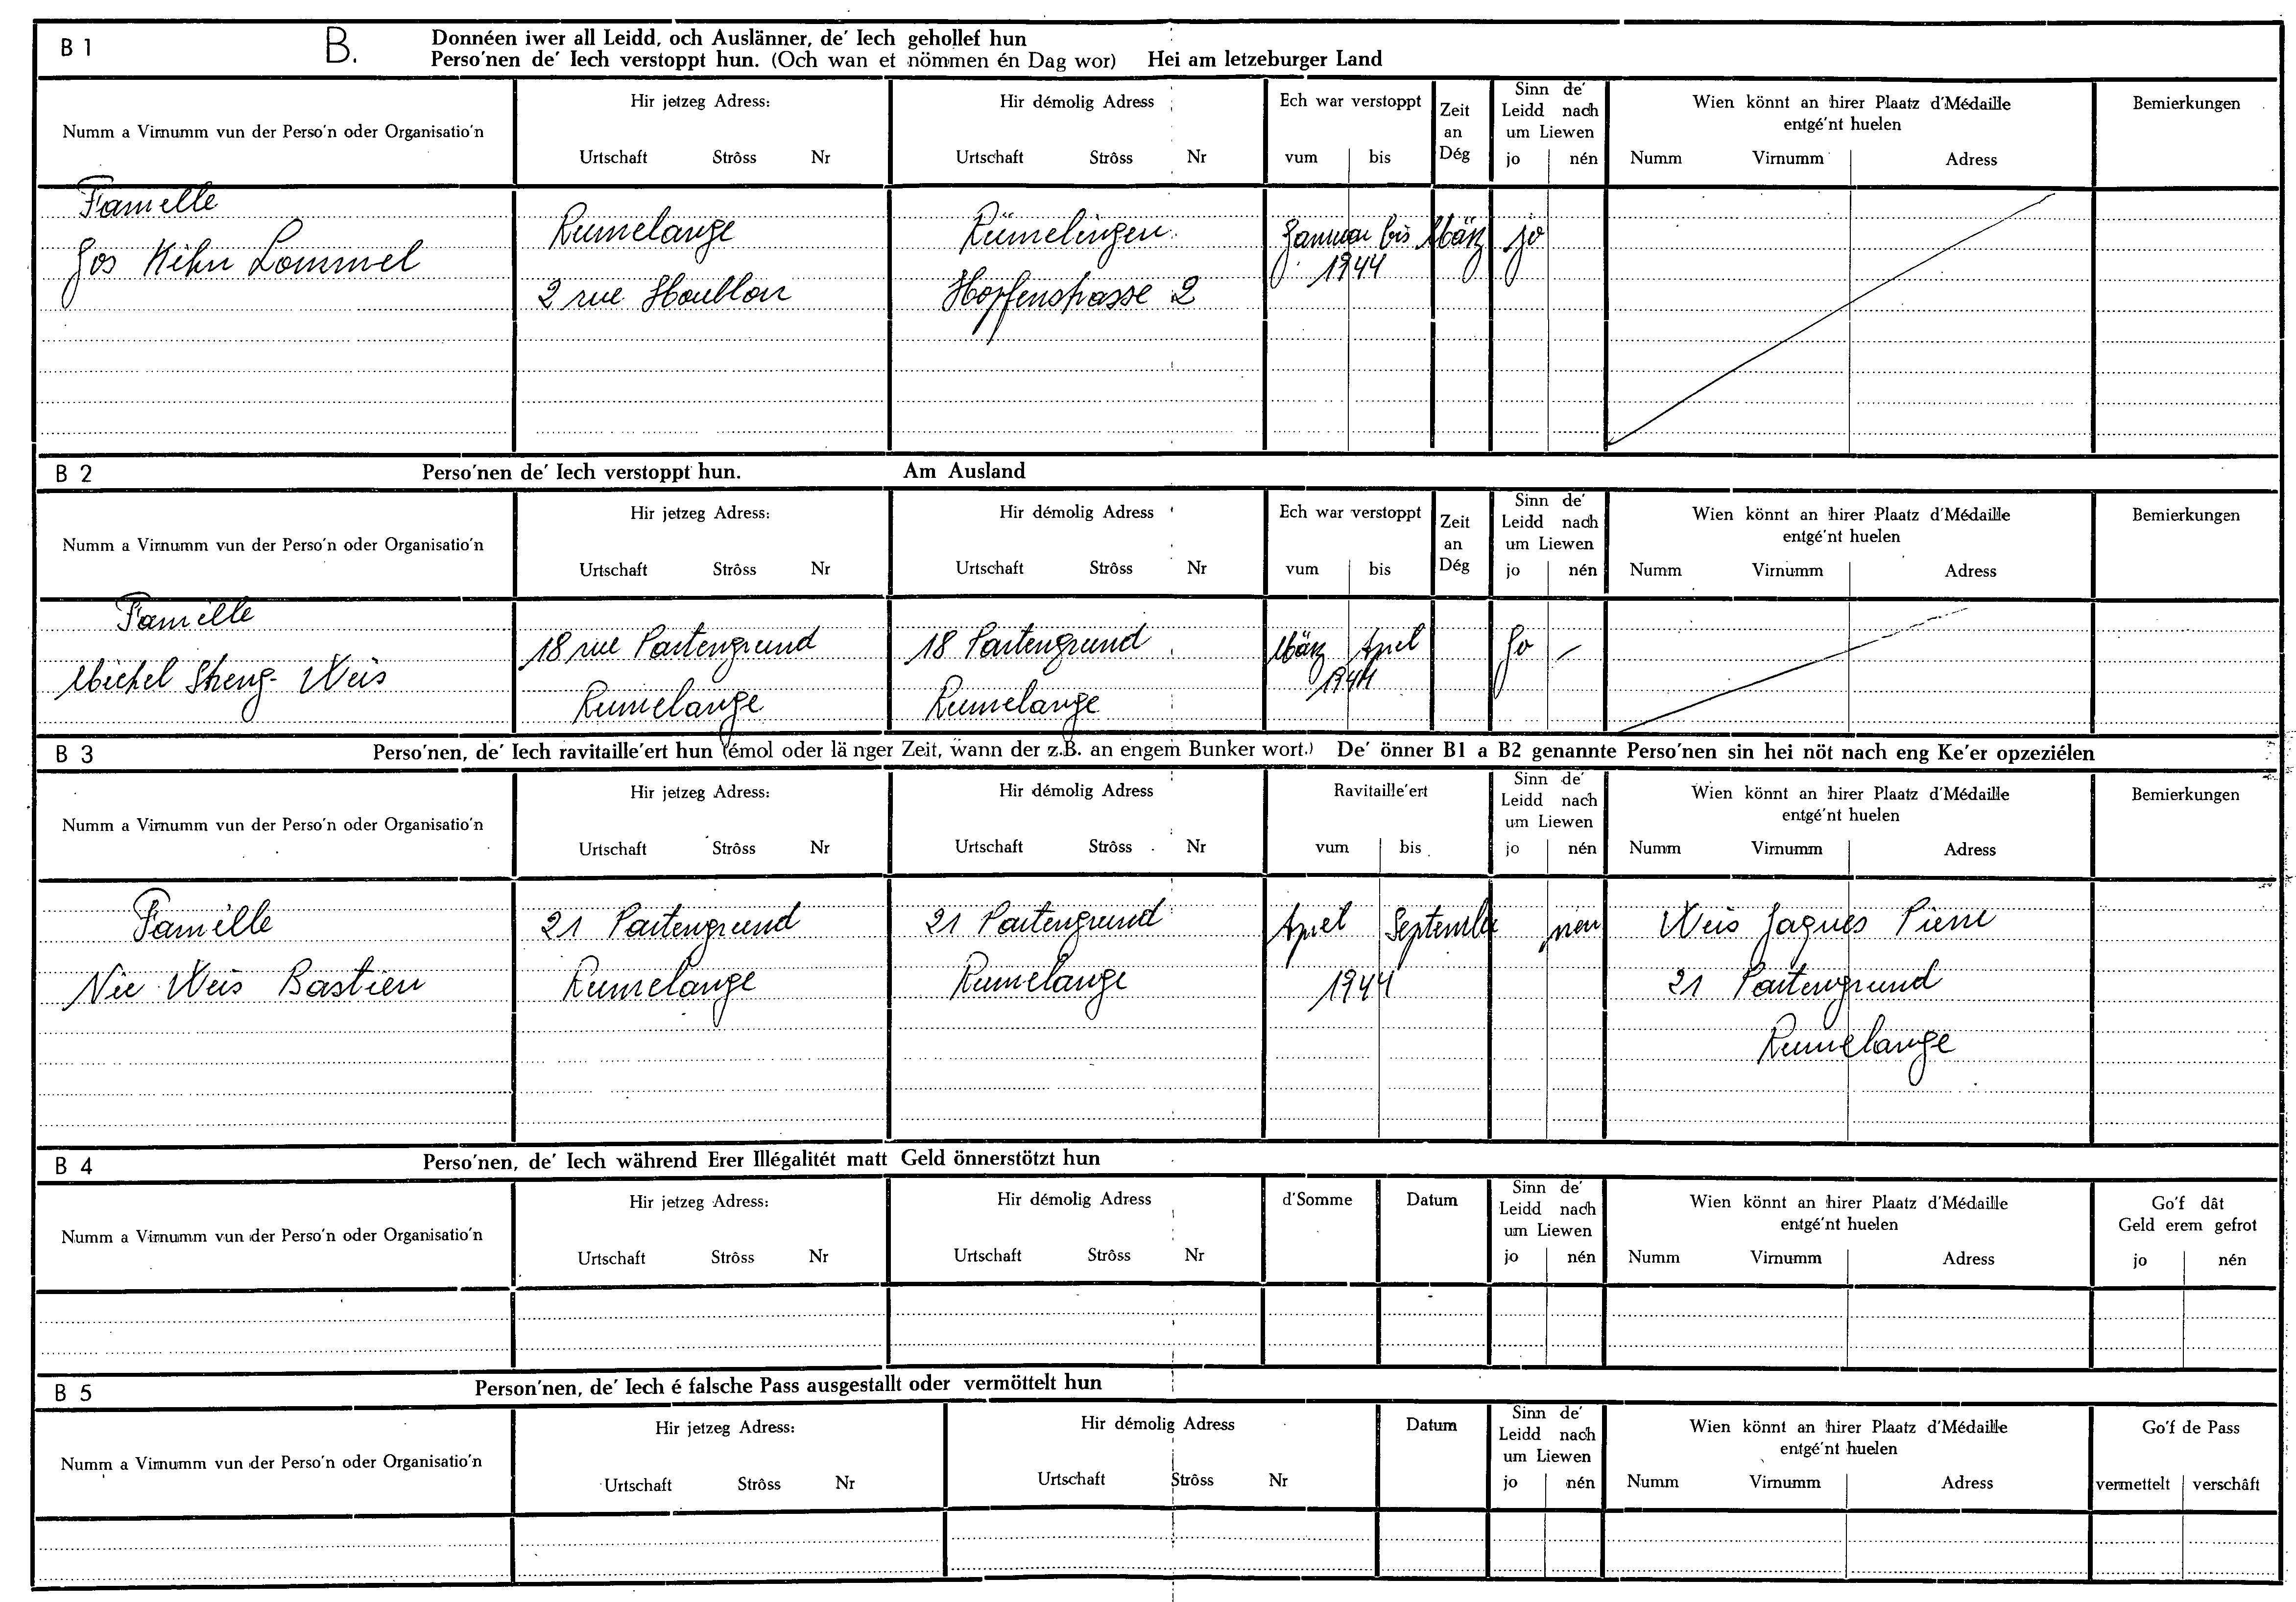 B 1
B.
Donnéen iwer all Leidd, och Auslänner, de' Iech gehollef hun
Perso'nen de' Iech verstoppt hun. (Och wan et nömmen én Dag wor) Hei am letzeburger Land
Numm a Virnumm vun der Perso'n oder Organisatio'n
Hir jetzeg Adress:
Urtschaft Strôss Nr
Hir démolig Adress
Urtschaft Strôss Nr
Ech war verstoppt
vum bis
Zeit
an
Dég
Sinn de'
Leidd nach
um Liewen
jo nén
Wien könnt an hirer Plaatz d'Médaille
entgé'nt huelen
Numm Virnumm Adress
Bemierkungen
Famelle
Jos Kihn Lommel
Rumelange
2 rue Houblon
Rümelingen
Hopfenstrasse 2
Januar bis März
1944
jo
B 2
Perso'nen de' Iech verstoppt hun. Am Ausland
Numm a Virnumm vun der Perso'n oder Organisatio'n
Hir jetzeg Adress:
Urtschaft Strôss Nr
Hir démolig Adress
Urtschaft Strôss Nr
Ech war verstoppt
vum bis
Zeit
an
Dég
Sinn de'
Leidd nach
um Liewen
jo nén
Wien könnt an hirer Plaatz d'Médaille
entgé'nt huelen
Numm Virnumm Adress
Bemierkungen
Famille
Michel Steng- Weis
18 rue Partengrund
Rumelange
18 Partengrund
Rumelange
März April
1944
Jo –
B 3
Perso'nen, de' Iech ravitaille'ert hun (émol oder länger Zeit, wann der z.B. an engem Bunker wort.) De' önner B1 a B2 genannte Perso'nen sin hei nöt nach eng Ke'er opzeziélen
Numm a Virnumm vun der Perso'n oder Organisatio'n
Hir jetzeg Adress:
Urtschaft Strôss Nr
Hir démolig Adress
Urtschaft Strôss Nr
Ravitaille'ert
vum bis
Sinn de'
Leidd nach
um Liewen
jo nén
Wien könnt an hirer Plaatz d'Médaille
entgé'nt huelen
Numm Virnumm Adress
Bemierkungen
Famille
Nic Weis Bastien
21 Partengrund
Rumelange
21 Partengrund
Rumelange
April September
1944
nen
Weis Jaques Pierre
21 Partengrund
Rumelange
B 4
Perso'nen, de' Iech während Erer Illégalitét matt Geld önnerstötzt hun
Numm a Virnumm vun der Perso'n oder Organisatio'n
Hir jetzeg Adress:
Urtschaft Strôss Nr
Hir démolig Adress
Urtschaft Strôss Nr
d'Somme
Datum
Sinn de'
Leidd nach
um Liewen
jo nén
Wien könnt an hirer Plaatz d'Médaille
entgé'nt huelen
Numm Virnumm Adress
Go'f dât
Geld erem gefrot
jo nén
B 5
Person'nen, de' Iech é falsche Pass ausgestallt oder vermöttelt hun
Numm a Virnumm vun der Perso'n oder Organisatio'n
Hir jetzeg Adress:
Urtschaft Strôss Nr
Hir démolig Adress
Urtschaft Strôss Nr
Datum
Sinn de'
Leidd nach
um Liewen
jo nén
Wien könnt an hirer Plaatz d'Médaille
entgé'nt huelen
Numm Virnumm Adress
Go'f de Pass
vermettelt verschâft